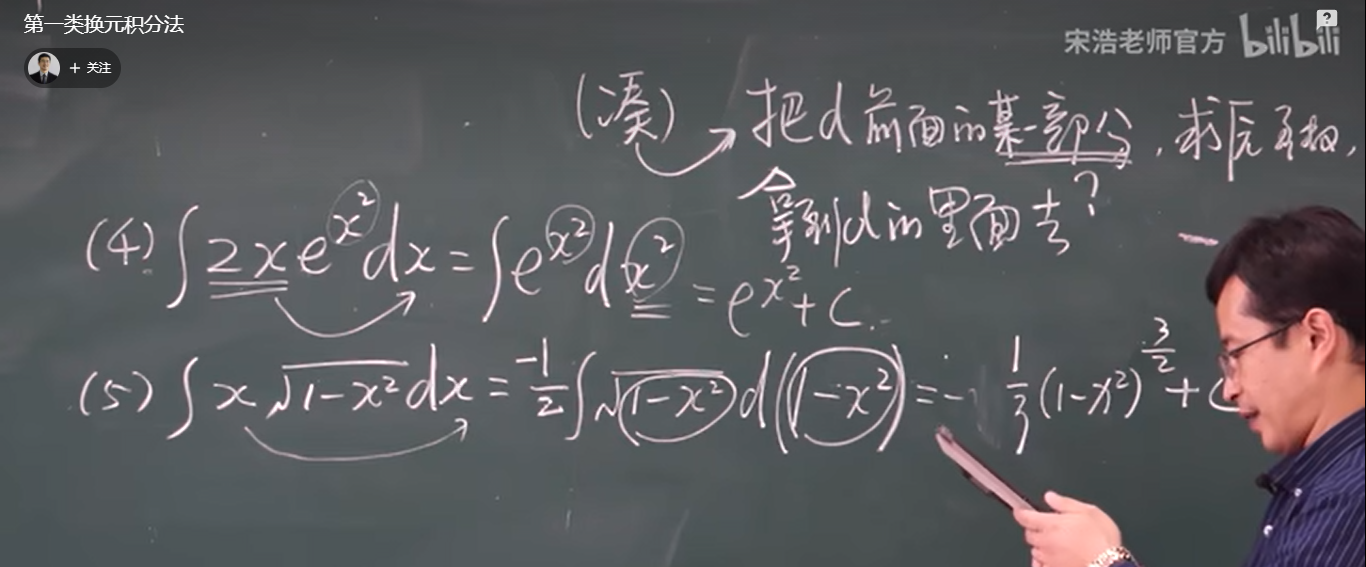 第一类换元积分法
+ 关注
宋浩老师官方 bilibili
?
(凑) 把d前面的某一部分，求原函数，
拿到d的里面去?
(4) ∫2xe^{x²}dx = ∫e^{x²}dx² = e^{x²}+C.
(5) ∫x√(1-x²)dx = -1/2∫√(1-x²)d(1-x²) = -1/3(1-x²)^{3/2}+C